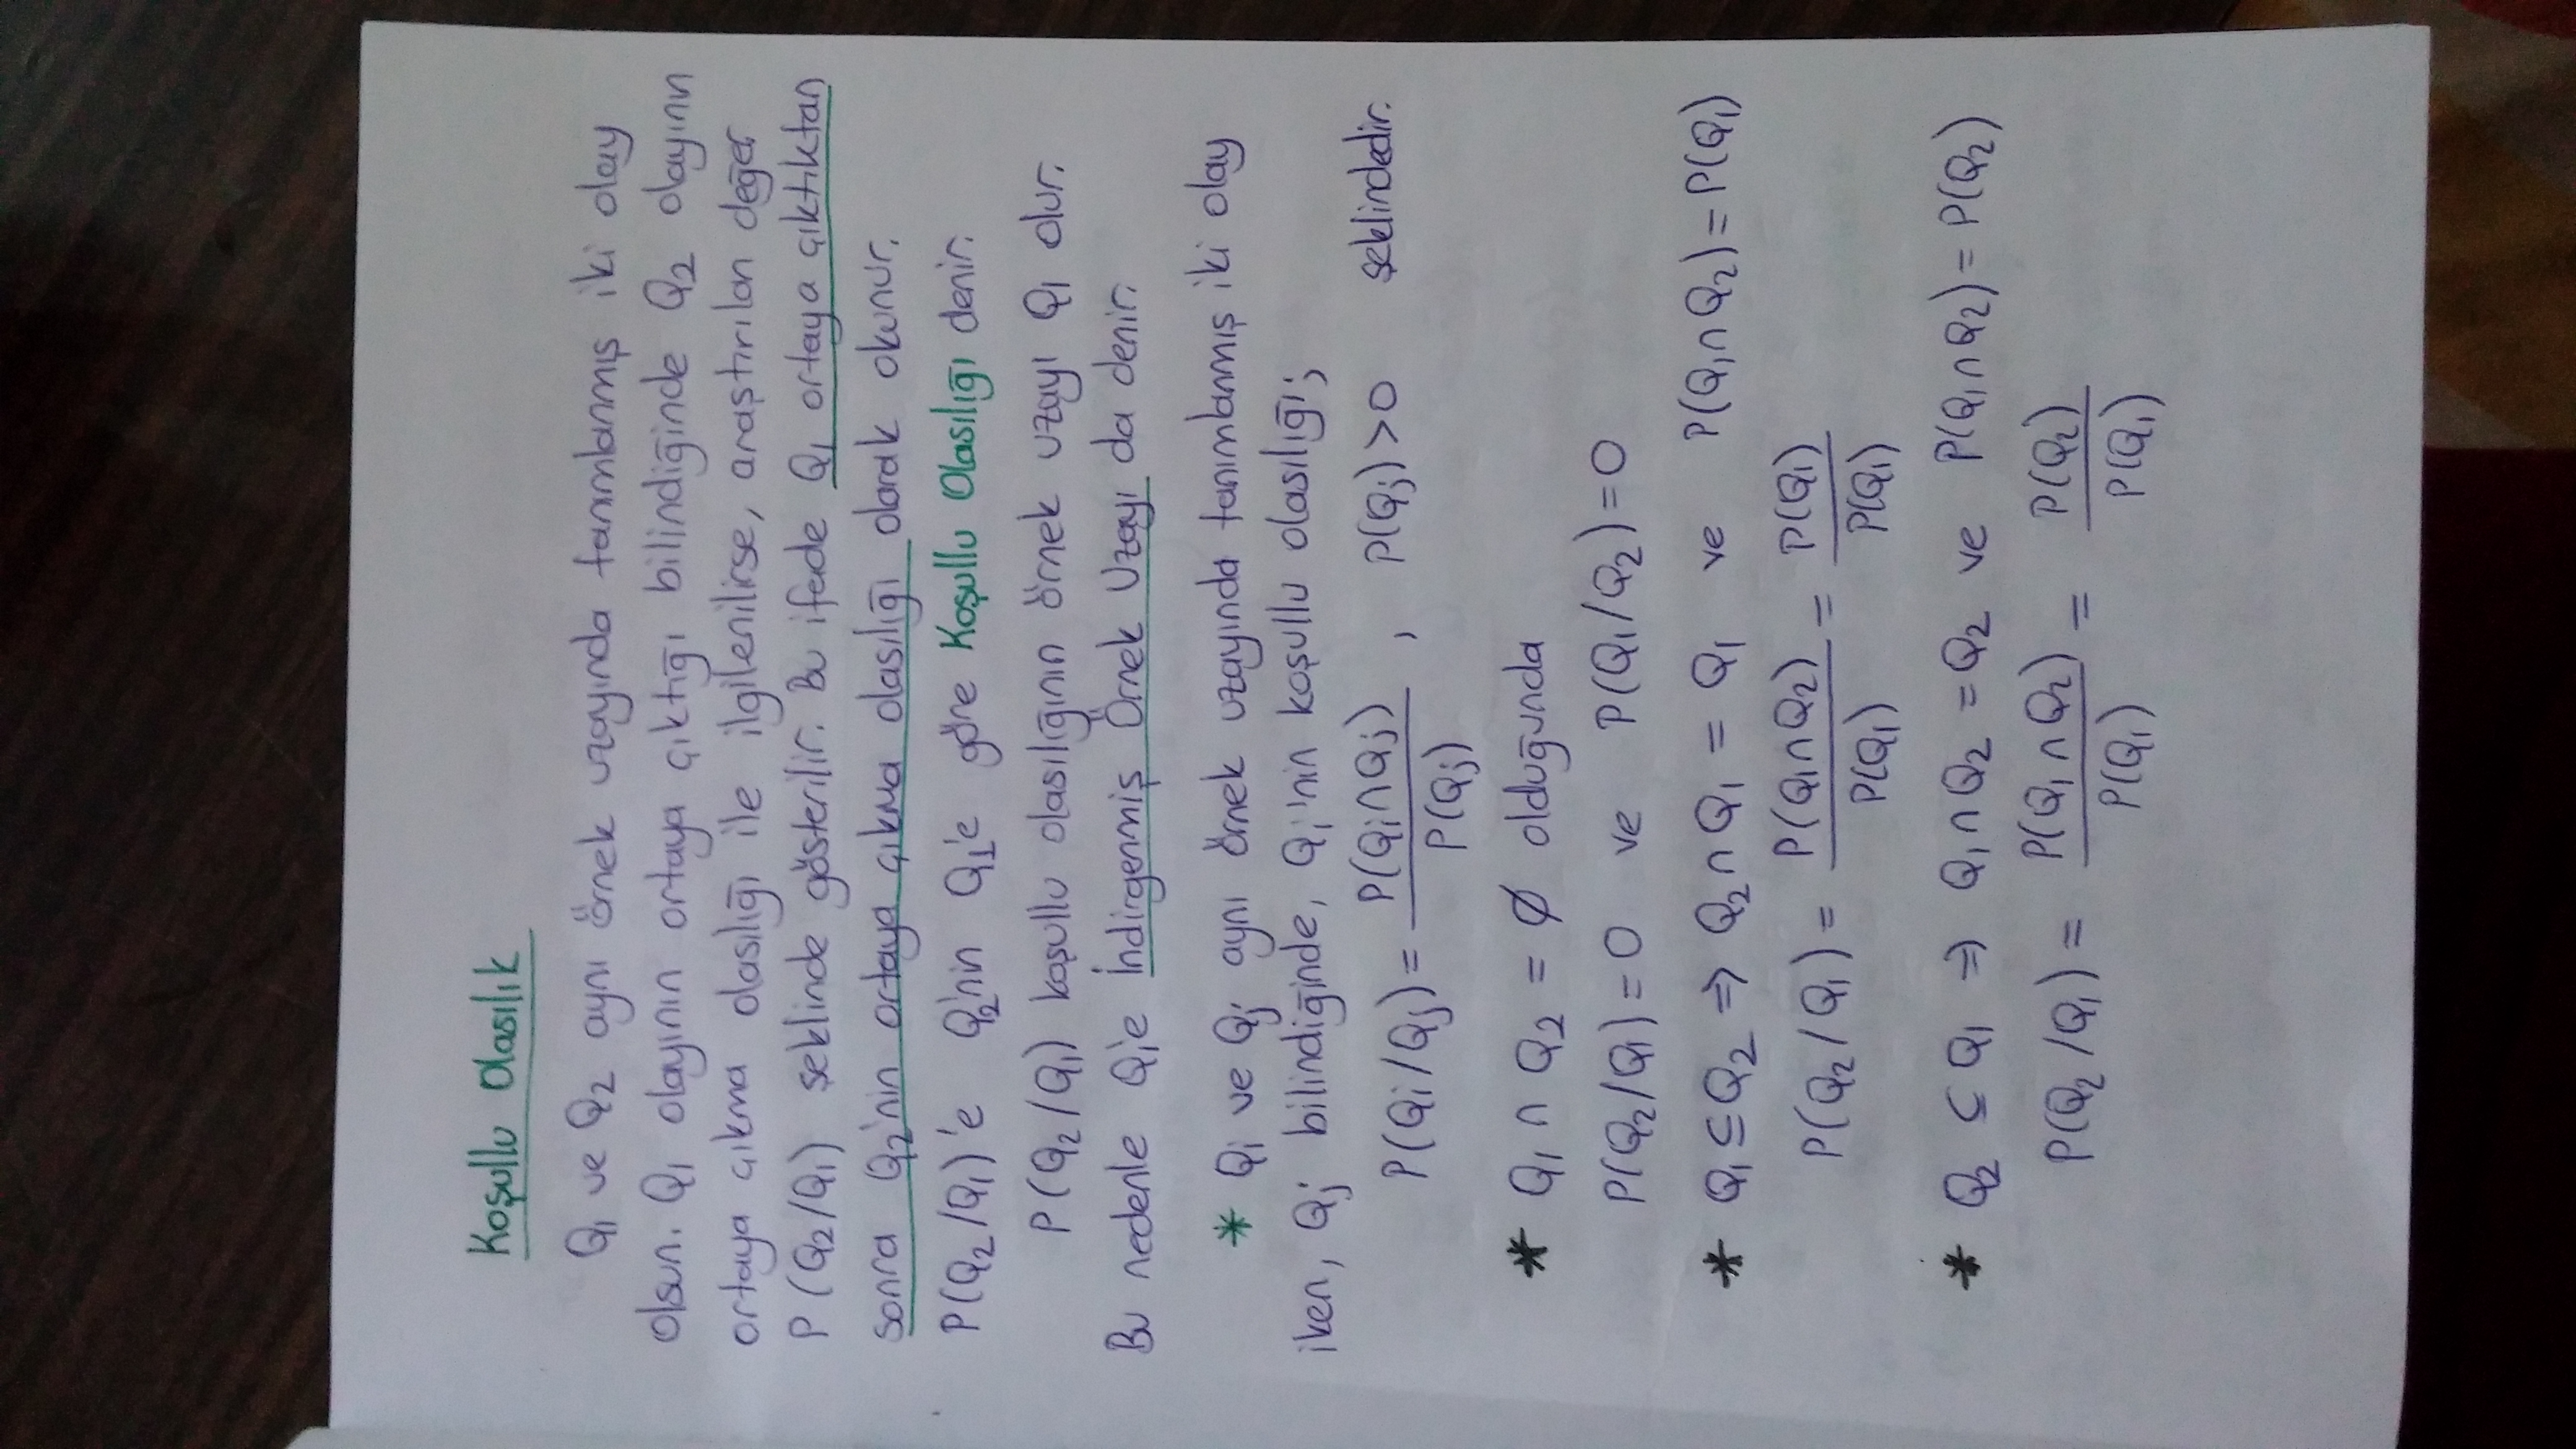 Koşullu Olasılık
Q₁ ve Q₂ aynı örnek uzayında tanımlanmış iki olay
olsun. Q₁ olayının ortaya çıktığı bilindiğinde Q₂ olayının
ortaya çıkma olasılığı ile ilgilenilirse, araştırılan değer
P(Q₂/Q₁) şeklinde gösterilir. Bu ifade Q₁ ortaya çıktıktan
sonra Q₂'nin ortaya çıkma olasılığı olarak okunur.
P(Q₂/Q₁)'e Q₂'nin Q₁'e göre Koşullu Olasılığı denir.
P(Q₂/Q₁) koşullu olasılığının örnek uzayı Q₁ olur.
Bu nedenle Q₁'e İndirgenmiş Örnek Uzayı da denir.
* Qi ve Qj aynı örnek uzayında tanımlanmış iki olay
iken, Qj bilindiğinde, Qi'nin koşullu olasılığı;
P(Qi/Qj) = P(Qi∩Qj) / P(Qj) , P(Qj)>0 şeklindedir.
* Q₁ ∩ Q₂ = ∅ olduğunda
P(Q₂/Q₁) = 0 ve P(Q₁/Q₂) = 0
* Q₁ ⊆ Q₂ ⇒ Q₂ ∩ Q₁ = Q₁ ve P(Q₁∩Q₂) = P(Q₁)
P(Q₂/Q₁) = P(Q₁∩Q₂) / P(Q₁) = P(Q₁) / P(Q₁)
* Q₂ ⊆ Q₁ ⇒ Q₁∩Q₂ = Q₂ ve P(Q₁∩Q₂) = P(Q₂)
P(Q₂/Q₁) = P(Q₁∩Q₂) / P(Q₁) = P(Q₂) / P(Q₁)